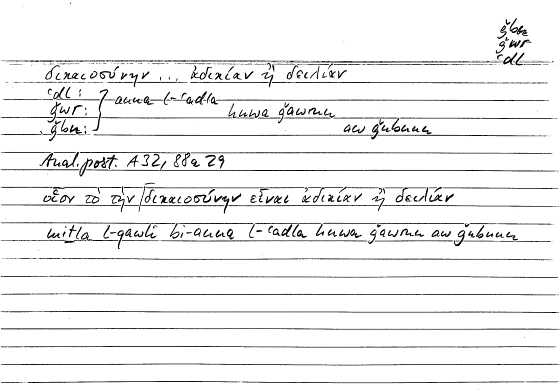 ǧbn
ǧwr
ʿdl
δικαιοσύνην ... ἀδικίαν ἢ δειλίαν
ʿdl : } anna l-ʿadla
ǧwr : huwa ǧawrun
ǧbn : aw ǧubnun
Anal. post. A 32, 88a 29
οἷον τὸ τὴν δικαιοσύνην εἶναι ἀδικίαν ἢ δειλίαν
miṯla l-qawli bi-anna l-ʿadla huwa ǧawrun aw ǧubnun